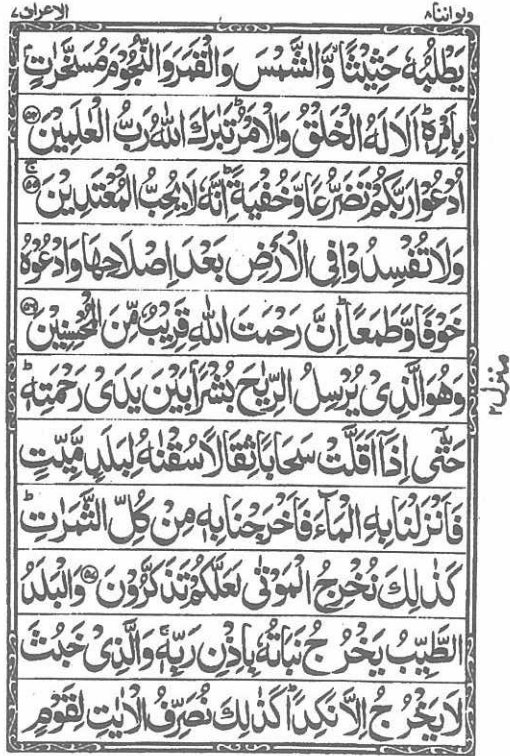 ولواننا ٨ الاعراف ٧
يَطْلُبُهٗ حَثِيْثًا ۙ وَّالشَّمْسَ وَالْقَمَرَ وَالنُّجُوْمَ مُسَخَّرٰتٍۭ
بِاَمْرِهٖ ؕ اَلَا لَهُ الْخَلْقُ وَالْاَمْرُ ؕ تَبٰرَكَ اللّٰهُ رَبُّ الْعٰلَمِيْنَ ﴿۵۴﴾
اُدْعُوْا رَبَّكُمْ تَضَرُّعًا وَّخُفْيَةً ؕ اِنَّهٗ لَا يُحِبُّ الْمُعْتَدِيْنَ ۚ﴿۵۵﴾
وَلَا تُفْسِدُوْا فِى الْاَرْضِ بَعْدَ اِصْلَاحِهَا وَادْعُوْهُ
خَوْفًا وَّطَمَعًا ؕ اِنَّ رَحْمَتَ اللّٰهِ قَرِيْبٌ مِّنَ الْمُحْسِنِيْنَ ﴿۵۶﴾
وَهُوَ الَّذِىْ يُرْسِلُ الرِّيٰحَ بُشْرًۢا بَيْنَ يَدَىْ رَحْمَتِهٖ ؕ
حَتّٰٓى اِذَاۤ اَقَلَّتْ سَحَابًا ثِقَالًا سُقْنٰهُ لِبَلَدٍ مَّيِّتٍ
فَاَنْزَلْنَا بِهِ الْمَآءَ فَاَخْرَجْنَا بِهٖ مِنْ كُلِّ الثَّمَرٰتِ ؕ
كَذٰلِكَ نُخْرِجُ الْمَوْتٰى لَعَلَّكُمْ تَذَكَّرُوْنَ ﴿۵۷﴾ وَالْبَلَدُ
الطَّيِّبُ يَخْرُجُ نَبَاتُهٗ بِاِذْنِ رَبِّهٖ ۚ وَالَّذِىْ خَبُثَ
لَا يَخْرُجُ اِلَّا نَكِدًا ؕ كَذٰلِكَ نُصَرِّفُ الْاٰيٰتِ لِقَوْمٍ
منزل ٢